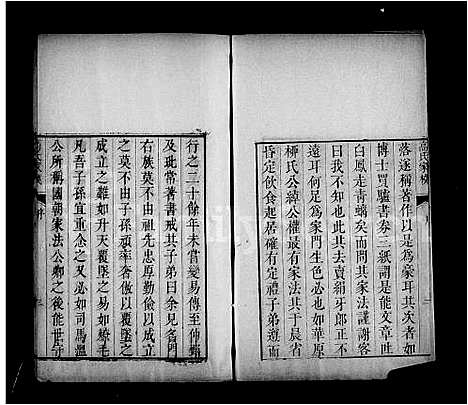 落遂稱著作以是為豪耳其次者如
博士買驢書券三紙謂是能文章吐
白鳳走青螭矣而問其家法謾謝客
曰我不知也此其去賣絹牙郎正不
遠耳何足為家門生色必也如華原
柳氏公綽公權最有家法其于晨省
昏定飲食起居確有定禮子弟遵而
行之二十餘年未嘗變易傳至仲郢
及玭常著書戒其子弟曰余見名門
右族莫不由祖先忠厚勤儉以成立
之莫不由子孫頑率奢傲以覆墜之
成立之難如升天覆墜之易如燎毛
凡吾子孫宜重念之又必如司馬溫
公所稱國朝家法公卿之後能世守